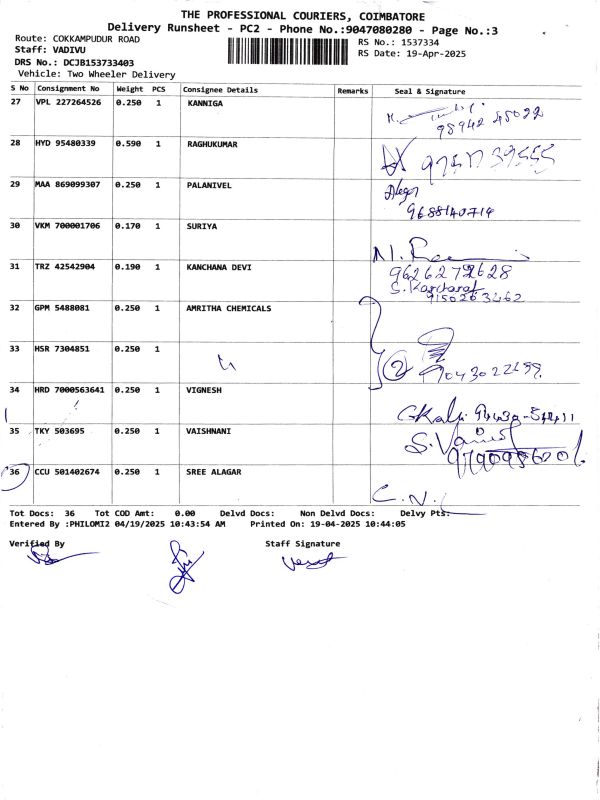 THE PROFESSIONAL COURIERS, COIMBATORE
Delivery Runsheet - PC2 - Phone No.:9047080280 - Page No.:3
Route: COKKAMPUDUR ROAD
RS No.: 1537334
Staff: VADIVU
RS Date: 19-Apr-2025
DRS No.: DCJB153733403
Vehicle: Two Wheeler Delivery
S No Consignment No Weight PCS Consignee Details Remarks Seal & Signature
27 VPL 227264526 0.250 1 KANNIGA
98942 45022
28 HYD 95480339 0.590 1 RAGHUKUMAR
29 MAA 869099307 0.250 1 PALANIVEL
9688140714
30 VKM 700001706 0.170 1 SURIYA
31 TRZ 42542904 0.190 1 KANCHANA DEVI
9626272628
9150263462
32 GPM 5488081 0.250 1 AMRITHA CHEMICALS
33 HSR 7304851 0.250 1
2
34 HRD 7000563641 0.250 1 VIGNESH
35 TKY 503695 0.250 1 VAISHNANI
36 CCU 501402674 0.250 1 SREE ALAGAR
Tot Docs: 36 Tot COD Amt: 0.00 Delvd Docs: Non Delvd Docs: Delvy Pts:
Entered By :PHILOMI2 04/19/2025 10:43:54 AM Printed On: 19-04-2025 10:44:05
Verified By Staff Signature